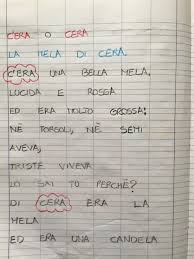 C'ERA O CERA
LA MELA DI CERA.
C'ERA UNA BELLA MELA,
LUCIDA E ROSSA
ED ERA MOLTO GROSSA;
NÈ TORSOLI, NÈ SEMI
AVEVA,
TRISTE VIVEVA
LO SAI TU PERCHÈ?
DI CERA ERA LA
MELA
ED ERA UNA CANDELA